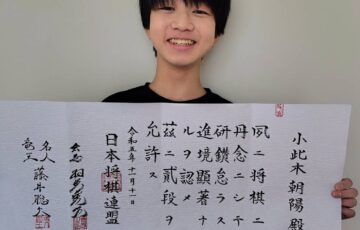 小此木朝陽殿
夙ニ将棋ニ
丹念ニシテ
研鑽怠ラス
進境顕著ナ
ルヲ認メ
茲ニ貳段ヲ
允許ス
令和五年
日本将棋連盟
会長 羽生善治
名人
竜王 藤井聡太